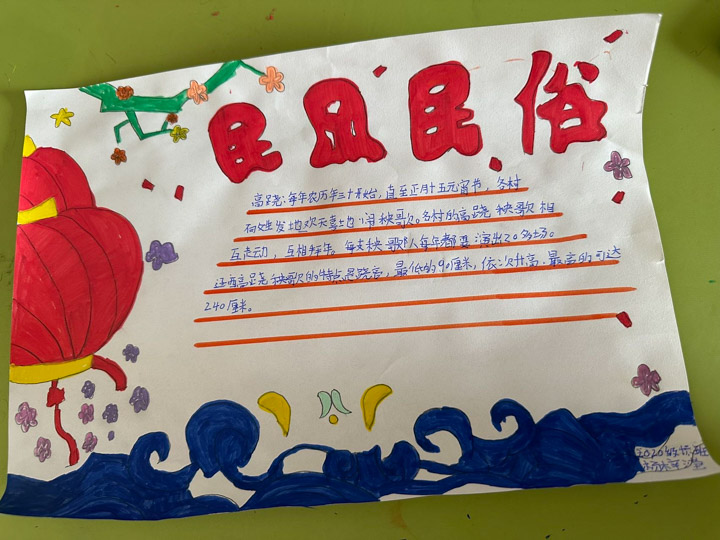 民风民俗
高跷:每年农历年三十开始,直至正月十五元宵节,各村
何处发地欢天喜地闹秧歌。各村的高跷秧歌相
互走动,互相拜年。每支秧歌队每年都要演出20多场。
辽西高跷秧歌的特点是跷高,最低的90厘米,依次升高,最高的可达
240厘米。
2020级 班